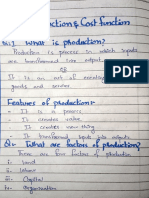 Production & Cost function
Q:1 What is production?
Production is process in which inputs
are transformed into output.
OR
It is an act of creating
goods and services
Features of production:-
It is a process
It creates value
It creates new thing
It transformed input into outputs
Q: What are factors of production?
There are four factors of production
i- Land
ii- Labour
iii- Capital
iv- Organization